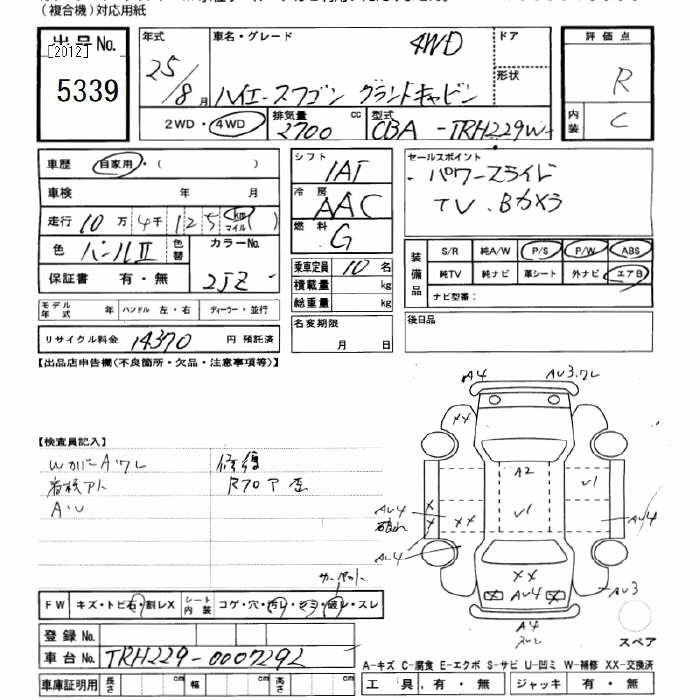 (複合機)対応用紙
出品No.
[2012]
5339
年式
25/8月
車名・グレード
4WD
ハイエースワゴン グランドキャビン
2WD・4WD
排気量
2700 cc
型式
CBA-TRH229W
ドア
形状
評価点
R
内装
C
車歴 自家用・( )
車検 年 月
走行 10万 4千 125 km マイル ( )
色 パールII 色替
カラーNo.
2JZ
保証書 有・無
モデル年式 年
ハンドル 左・右
ディーラー・並行
リサイクル料金 14370 円 預託済
シフト
IAT
冷房
AAC
燃料
G
乗車定員 10 名
積載量 kg
総重量 kg
名変期限
月 日
セールスポイント
・パワースライド
TV.Bカメラ
装備品
S/R 純A/W P/S P/W ABS
純TV 純ナビ 革シート 外ナビ エアB
ナビ型番:
後日品
【出品店申告欄(不良箇所・欠品・注意事項等)】
【検査員記入】
WカバーAワレ
看板アト
A・U
修復
R70ア歪
A4
AU3.ワレ
XX
A2
U1
U1
AU4
X
X
XX
AU4
AU4
XX
AU4
AU3
A4
スペア
カーペット
FW キズ・トビ石・割レX
シート内装 コゲ・穴・汚レ・シミ・破レ・スレ
登録No.
車台No. TRH229-0007292
車庫証明用 長さ cm 幅 cm 高さ cm
A-キズ C-腐食 E-エクボ S-サビ U-凹ミ W-補修 XX-交換済
工具 有・無 ジャッキ 有・無